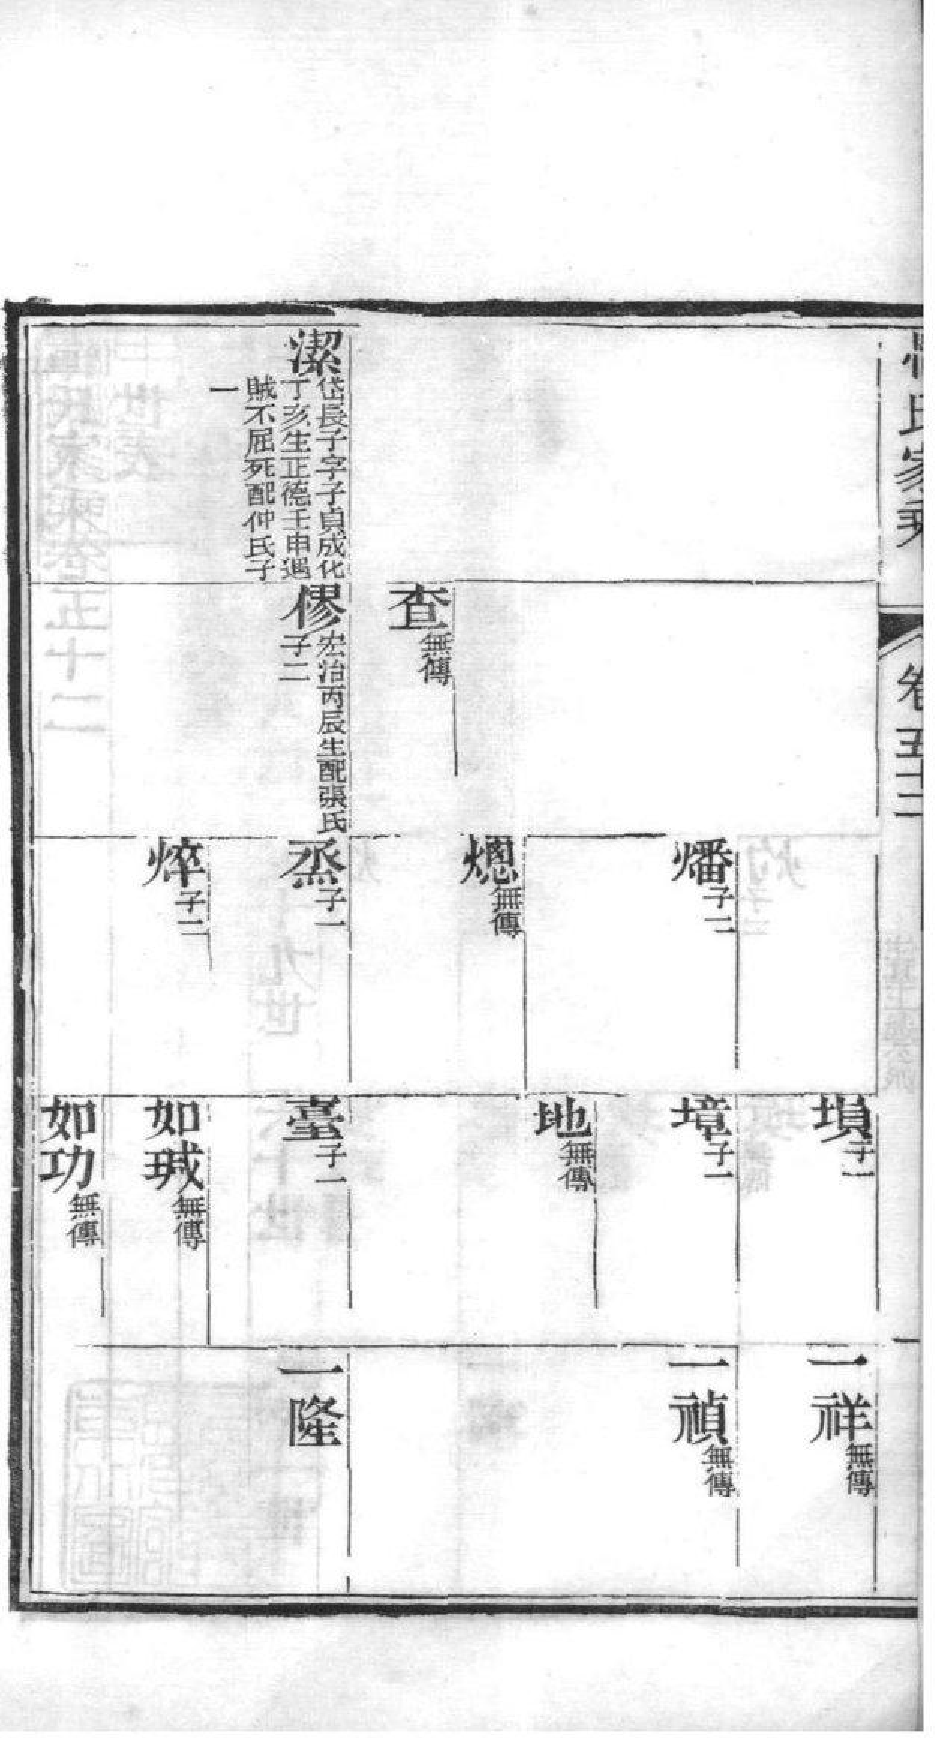 氏家乘
卷五十二
潔
岱長子字子貞成化
丁亥生正德壬申遇
賊不屈死配仲氏子
一
查
無傳
僇
宏治丙辰生配張氏
子二
燔
子二
熜
無傳
烝
子一
焠
子二
塤
子一
墇
子一
地
無傳
臺
子一
如珬
無傳
如功
無傳
一祥
無傳
一禎
無傳
一隆